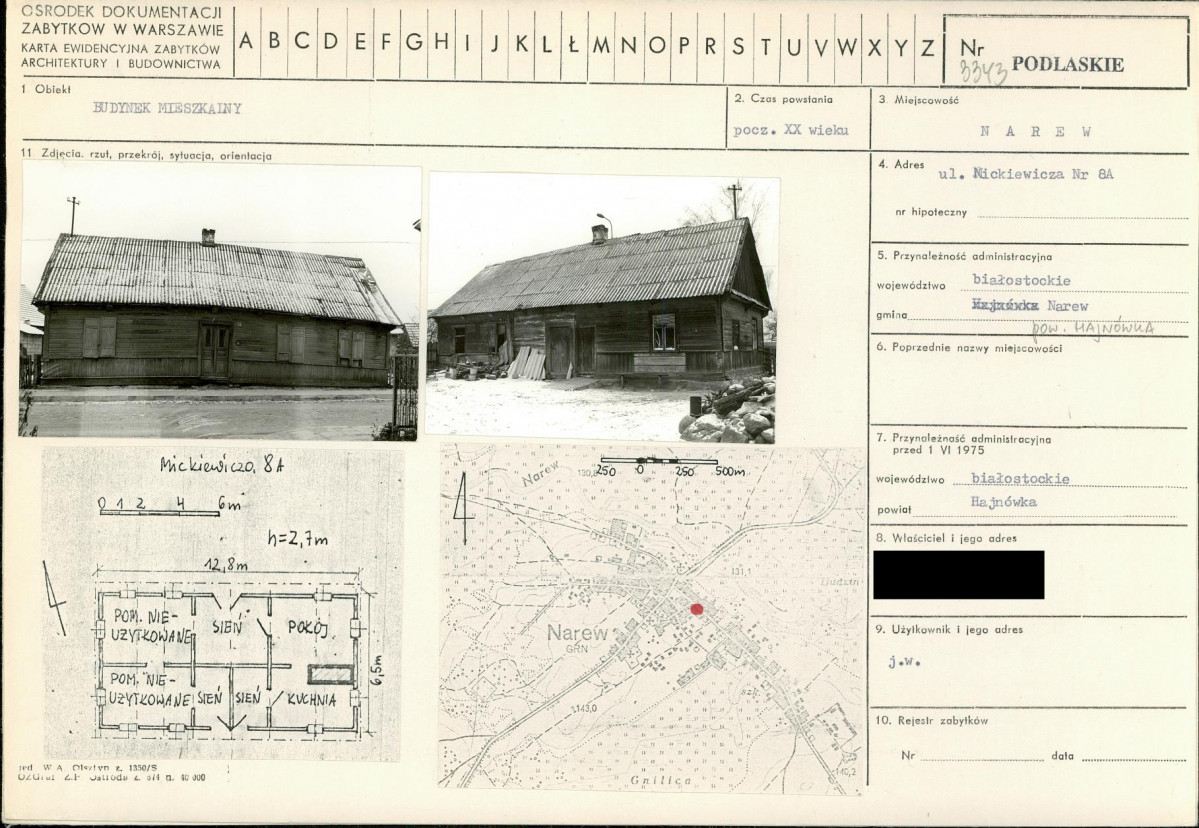 OŚRODEK DOKUMENTACJI
ZABYTKÓW W WARSZAWIE
KARTA EWIDENCYJNA ZABYTKÓW
ARCHITEKTURY I BUDOWNICTWA
A B C D E F G H I J K L Ł M N O P R S T U V W X Y Z
Nr 3343 PODLASKIE
1 Obiekt
BUDYNEK MIESZKALNY
2. Czas powstania
pocz. XX wieku
3. Miejscowość
N A R E W
11 Zdjęcia, rzut, przekrój, sytuacja, orientacja
4. Adres
ul. Mickiewicza Nr 8A
nr hipoteczny
5. Przynależność administracyjna
województwo białostockie
gmina Hajnówka Narew
pow. HAJNÓWKA
6. Poprzednie nazwy miejscowości
7. Przynależność administracyjna
przed 1 VI 1975
województwo białostockie
powiat Hajnówka
8. Właściciel i jego adres
9. Użytkownik i jego adres
j.w.
10. Rejestr zabytków
Nr data
Mickiewicza 8A
0 1 2 4 6m
h=2,7m
12,8m
POM. NIE-
UŻYTKOWANE
SIEŃ
POKÓJ
6,5m
POM. NIE-
UŻYTKOWANE
SIEŃ
SIEŃ
KUCHNIA
Narew
130,8
250 0 250 500m
131,1
Dudzin
Narew
GRN
szk.
143,0
140,2
Gnilica
W.A. Olsztyn z. 1350/S
OZGraf. Z.P. Ostróda z. 674 n. 40 000